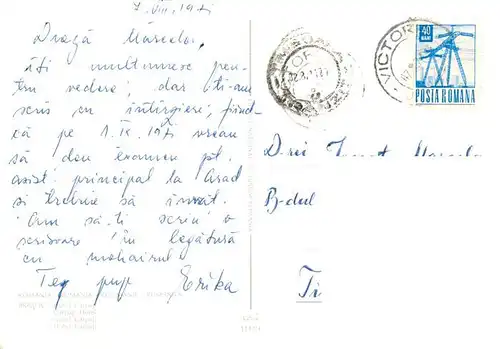 7.VIII.1971
Dragă Marcela,
îți mulțumesc pen-
tru vedere, dar ți-am
scris cu întîrziere, fiind-
că pe 1.IX.1971 vreau
să dau examen pt.
asist. principal la Arad
și trebuie să învăț.
Am să-ți scriu o
scrisoare în legătură
cu mohairul.
Te pup Erika
40 BANI
POSTA ROMANA
VICTOR
B-dul
Ti